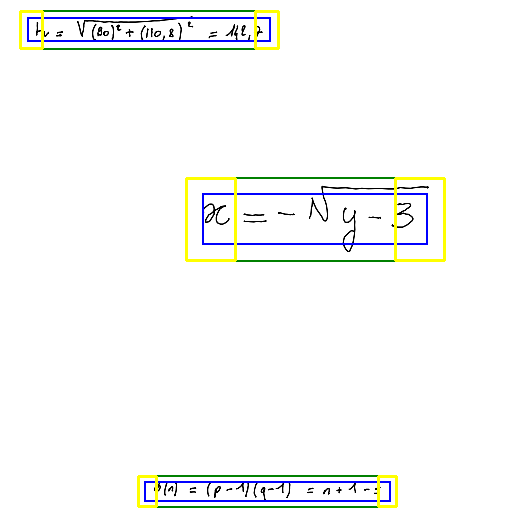 h = √(90)² + (110,8)² = 142,7
x = - √y - 3
(n) = (p - 1)(q - 1) = n + 1 -